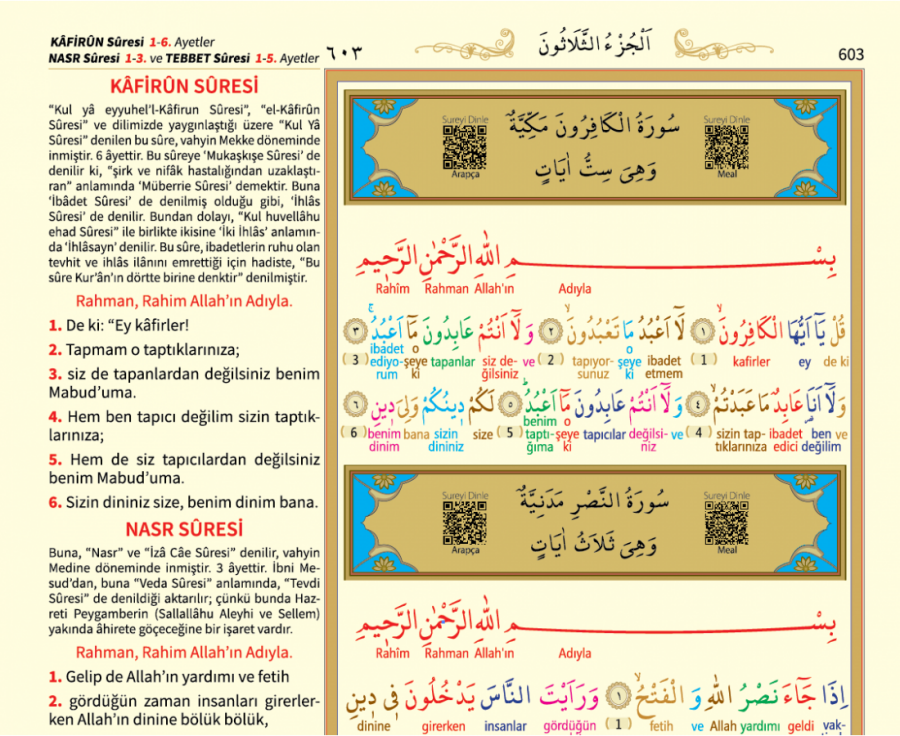 KÂFİRÛN Sûresi 1-6. Ayetler
NASR Sûresi 1-3. ve TEBBET Sûresi 1-5. Ayetler
٦٠٣
اَلْجُزْءُ الثَّلَاثُونَ
603
KÂFİRÛN SÛRESİ
“Kul yâ eyyuhel'l-Kâfirun Sûresi”, “el-Kâfirûn
Sûresi” ve dilimizde yaygınlaştığı üzere “Kul Yâ
Sûresi” denilen bu sûre, vahyin Mekke döneminde
inmiştir. 6 âyettir. Bu sûreye ‘Mukaşkışe Sûresi’ de
denilir ki, “şirk ve nifâk hastalığından uzaklaştı-
ran” anlamında ‘Müberrie Sûresi’ demektir. Buna
‘İbâdet Sûresi’ de denilmiş olduğu gibi, ‘İhlâs
Sûresi’ de denilir. Bundan dolayı, “Kul huvellâhu
ehad Sûresi” ile birlikte ikisine ‘İki İhlâs’ anlamın-
da ‘İhlâsayn’ denilir. Bu sûre, ibadetlerin ruhu olan
tevhit ve ihlâs ilânını emrettiği için hadiste, “Bu
sûre Kur’ân’ın dörtte birine denktir” denilmiştir.
Rahman, Rahim Allah’ın Adıyla.
1. De ki: “Ey kâfirler!
2. Tapmam o taptıklarınıza;
3. siz de tapanlardan değilsiniz benim
Mabud’uma.
4. Hem ben tapıcı değilim sizin taptık-
larınıza;
5. Hem de siz tapıcılardan değilsiniz
benim Mabud’uma.
6. Sizin dininiz size, benim dinim bana.
NASR SÛRESİ
Buna, “Nasr” ve “İzâ Câe Sûresi” denilir, vahyin
Medine döneminde inmiştir. 3 âyettir. İbni Me-
sud’dan, buna “Veda Sûresi” anlamında, “Tevdi
Sûresi” de denildiği aktarılır; çünkü bunda Haz-
reti Peygamberin (Sallallâhu Aleyhi ve Sellem)
yakında âhirete göçeceğine bir işaret vardır.
Rahman, Rahim Allah’ın Adıyla.
1. Gelip de Allah’ın yardımı ve fetih
2. gördüğün zaman insanları girerler-
ken Allah’ın dinine bölük bölük,
Sureyi Dinle
Arapça
سُورَةُ الْكَافِرُونَ مَكِّيَّةٌ
وَهِىَ سِتُّ اٰيَاتٍ
Sureyi Dinle
Meal
بِسْمِ اللّٰهِ الرَّحْمٰنِ الرَّحٖيمِ
Rahîm Rahman Allah’ın Adıyla
قُلْ يَٓا اَيُّهَا الْكَافِرُونَۙ ﴿١﴾ لَٓا اَعْبُدُ مَا تَعْبُدُونَۙ ﴿٢﴾ وَلَٓا اَنْتُمْ عَابِدُونَ مَٓا اَعْبُدُۚ ﴿٣﴾
ibadet o o
( 3 ) ediyo- şeye tapanlar siz de- ve ( 2 ) tapıyor- şeye ibadet ( 1 ) kafirler ey de ki
rum ki ğilsiniz sunuz ki etmem
وَلَٓا اَنَا۬ عَابِدٌ مَا عَبَدْتُمْۙ ﴿٤﴾ وَلَٓا اَنْتُمْ عَابِدُونَ مَٓا اَعْبُدُۜ ﴿٥﴾ لَكُمْ دٖينُكُمْ وَلِىَ دٖينِ ﴿٦﴾
benim o
( 6 ) benim bana sizin size ( 5 ) taptı- şeye tapıcılar değilsi- ve ( 4 ) sizin tap- ibadet ben ve
dinim dininiz ğıma ki niz tıklarınıza edici değilim
Sureyi Dinle
Arapça
سُورَةُ النَّصْرِ مَدَنِيَّةٌ
وَهِىَ ثَلَاثُ اٰيَاتٍ
Sureyi Dinle
Meal
بِسْمِ اللّٰهِ الرَّحْمٰنِ الرَّحٖيمِ
Rahîm Rahman Allah’ın Adıyla
اِذَا جَٓاءَ نَصْرُ اللّٰهِ وَالْفَتْحُۙ ﴿١﴾ وَرَاَيْتَ النَّاسَ يَدْخُلُونَ فٖى دٖينِ
dinine girerken insanlar gördüğün ( 1 ) fetih ve Allah yardımı geldi vak-